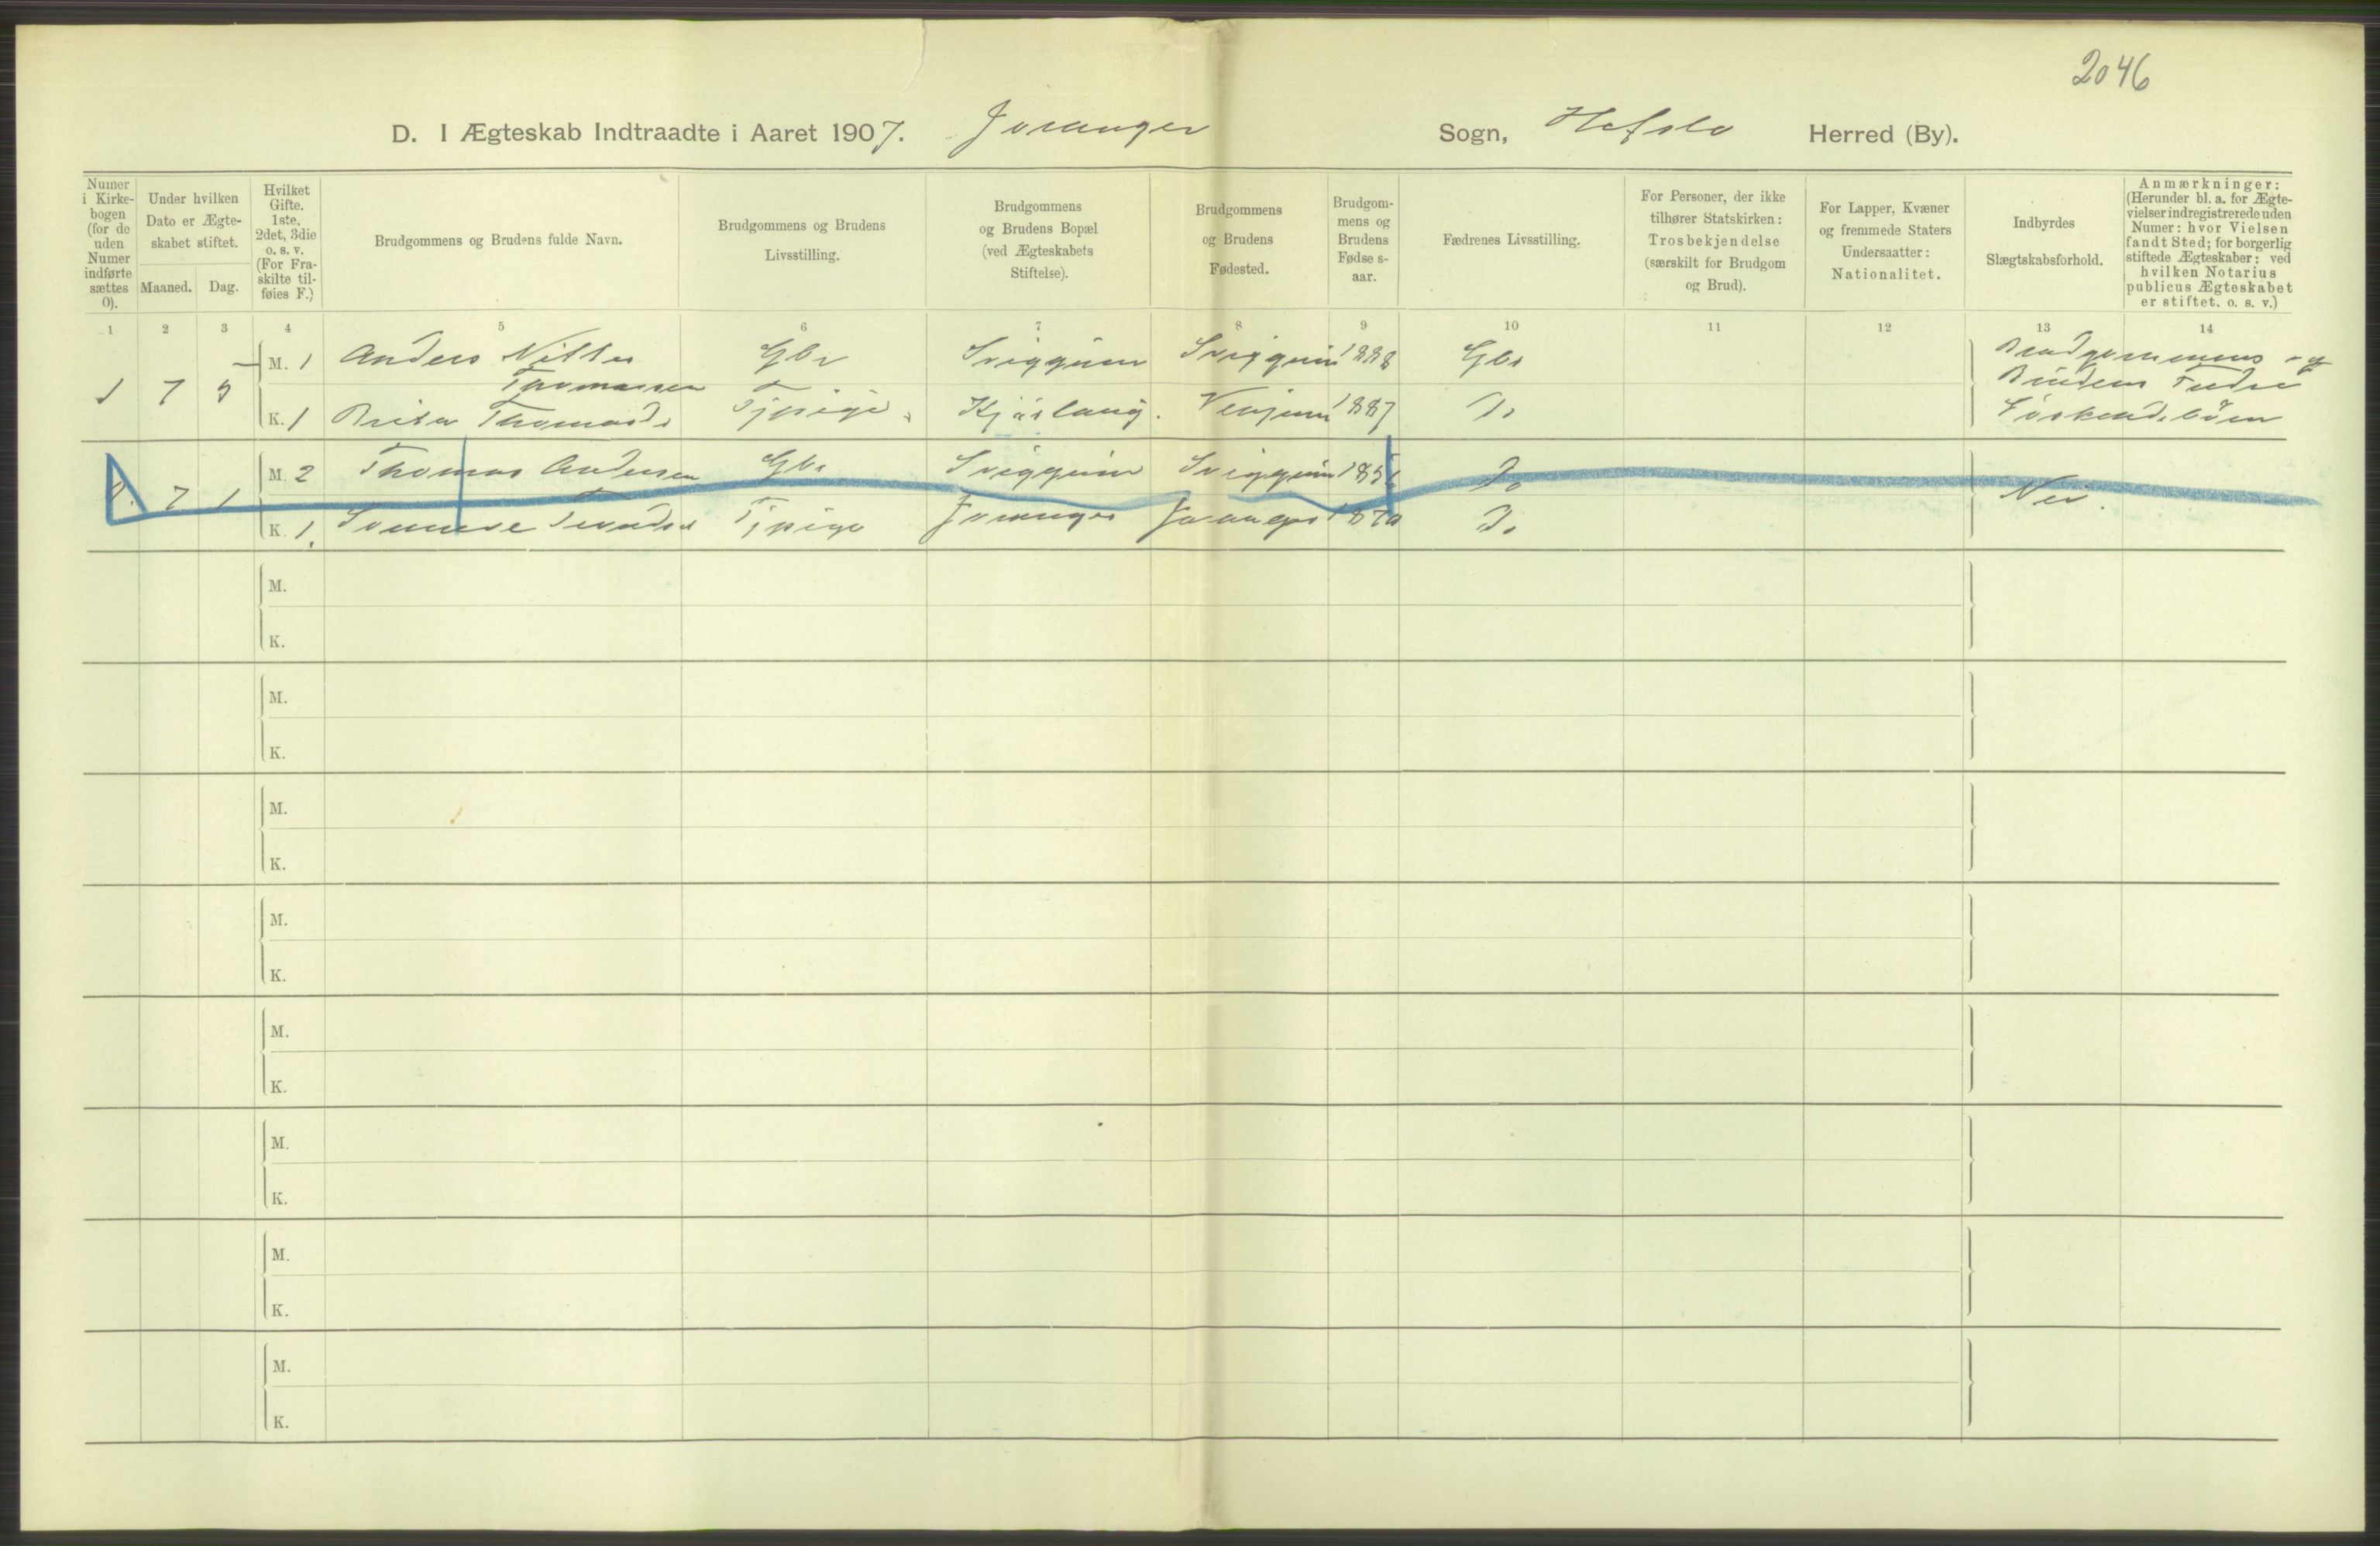 2046
D. I Ægteskab Indtraadte i Aaret 1907. Joranger Sogn, Hafslo Herred (By).
Numer i Kirke-bogen (for de uden Numer indførte sættes 0).
Under hvilken Dato er Ægte-skabet stiftet.
Maaned. Dag.
Hvilket Gifte. 1ste, 2det, 3die o. s. v. (For Fra-skilte til-føies F.)
Brudgommens og Brudens fulde Navn.
Brudgommens og Brudens Livsstilling.
Brudgommens og Brudens Bopæl (ved Ægteskabets Stiftelse).
Brudgommens og Brudens Fødested.
Brudgom-mens og Brudens Fødse s-aar.
Fædrenes Livsstilling.
For Personer, der ikke tilhører Statskirken: Trosbekjendelse (særskilt for Brudgom og Brud).
For Lapper, Kvæner og fremmede Staters Undersaatter: Nationalitet.
Indbyrdes Slægtskabsforhold.
Anmærkninger: (Herunder bl. a. for Ægte-vielser indregistrerede uden Numer: hvor Vielsen fandt Sted; for borgerlig stiftede Ægteskaber: ved hvilken Notarius publicus Ægteskabet er stiftet. o. s. v.)
1 2 3 4 5 6 7 8 9 10 11 12 13 14
M. 1 Anders Gbr Sviggum Sviggum 1888 Gbr Brudgommens og
1 7 5 Thomassen Brudens Fædre
K. 1 Brita Thomasdr Tjpige Venjum 1887 Do Søskendebørn
M. 2 Thomas Andersen Gbr Sviggum Sviggum Do
7 1 Nei.
K. 1. Tjpige Joranger Joranger Do
M.
K.
M.
K.
M.
K.
M.
K.
M.
K.
M.
K.
M.
K.
M.
K.